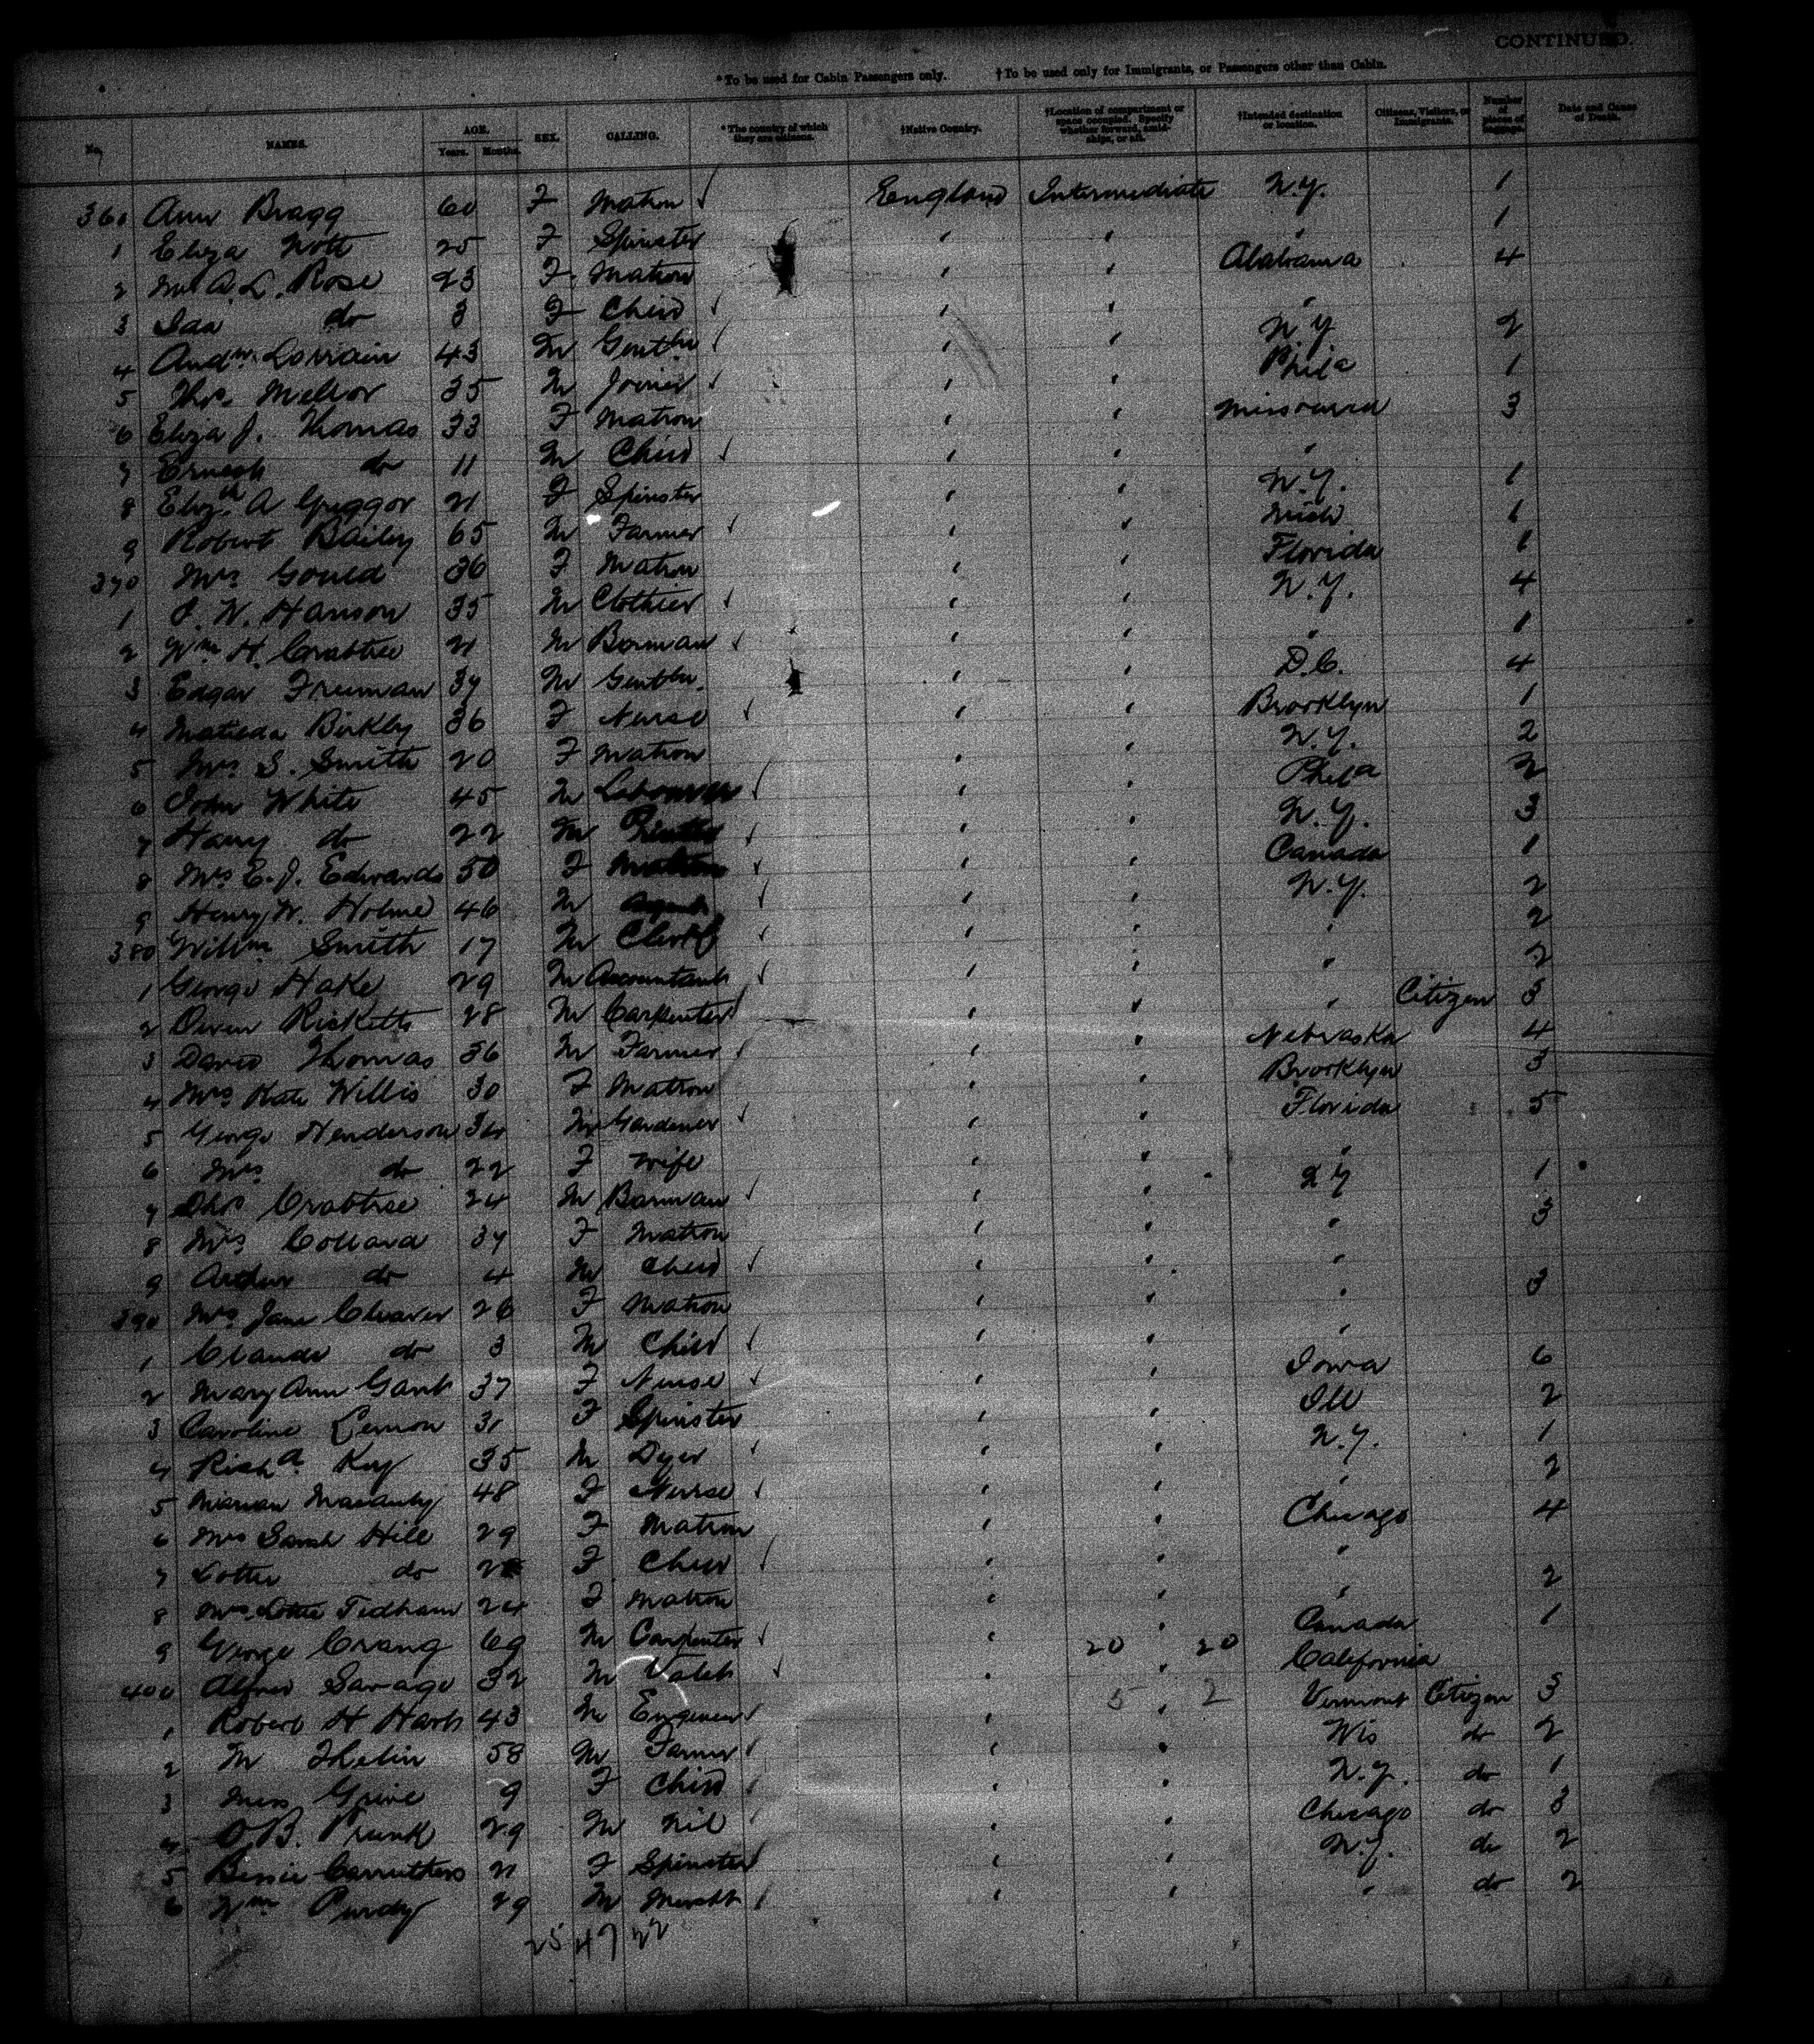 CONTINUED.
*To be used for Cabin Passengers only. †To be used only for Immigrants, or Passengers other than Cabin.
No. NAMES. AGE. Years. Months. SEX. CALLING. *The country of which they are citizens. †Native Country. †Location of compartment or space occupied. Specify whether forward, amidships, or aft. †Intended destination or location. Citizens, Visitors, or Immigrants. Number of pieces of baggage. Date and Cause of Death.
360 Ann Bragg 60 F Matron England Intermediate N.Y. 1
1 Eliza Nott 25 F Spinster " " " 1
2 Mrs A. L. Rose 23 F Matron " " Alabama 4
3 Ida do 3 F Child " " "
4 Andw. Lorrain 43 M Gentln " " N.Y. 2
5 Thos. Mellor 35 M Joiner " " Phila 1
6 Eliza J. Thomas 33 F Matron " " 3
7 Ernest do 11 M Child " " "
8 Elizth A Greggor 21 F Spinster " " N.Y. 1
9 Robert Bailey 65 M Farmer " " Mich 1
370 Mrs Gould 36 F Matron " " Florida 1
1 J. W. Hanson 35 M Clothier " " N.Y. 4
2 Wm H. Crabtree 21 M Barman " " " 1
3 Edgar Freeman 37 M Gentln. " " D.C. 4
4 Matilda Birkley 36 F Nurse " " Brooklyn 1
5 Mrs S. Smith 20 F Matron " " N.Y. 2
6 John White 45 M Labourer " " Phila 2
7 Harry do 22 M " " N.Y. 3
8 Mrs E. J. Edwards 50 F Matron " " Canada 1
9 Henry W. Holme 46 M Agent " " N.Y. 2
380 Willm Smith 17 M Clerk " " " 2
1 George Hake 29 M Accountant " " " 2
2 Owen Ricketts 28 M Carpenter " " " Citizen 3
3 David Thomas 36 M Farmer " " Nebraska 4
4 Mrs Kate Willis 30 F Matron " " Brooklyn 3
5 George Henderson 34 M Gardener " " Florida 5
6 Mrs do 22 F Wife " " "
7 Thos Crabtree 24 M Barman " " N.Y. 1
8 Mrs Collard 37 F Matron " " " 3
9 Arthur do 4 M Child " " "
390 Mrs Jane Cleaver 26 F Matron " " " 3
1 Claude do 3 M Child " " "
2 Mary Ann Gant 37 F Nurse " " Iowa 6
3 Caroline Lemon 31 F Spinster " " Ill 2
4 Richd. Kay 35 M Dyer " " N.Y. 1
5 Marian 48 F Nurse " " " 2
6 Mrs Sarah Hill 29 F Matron " " Chicago 4
7 Lottie do 2 F Child " " "
8 Mrs Lottie Tedham 24 F Matron " " " 2
9 George Crang 69 M Carpenter " " Canada 1
20 20
400 Alfred Savage 32 M Valet " " California
5 2
1 Robert H Hart 43 M Engineer " " Vermont Citizen 3
2 M Thelin 58 M Farmer " " Wis do 2
3 Miss Grive 9 F Child " " N.Y. do 1
4 O. B. Prunk 29 M Nil " " Chicago do 3
5 Bessie Carruthers 21 F Spinster " " N.Y. do 2
6 Wm Purdy 29 M Mercht " " " do 2
25 47 22